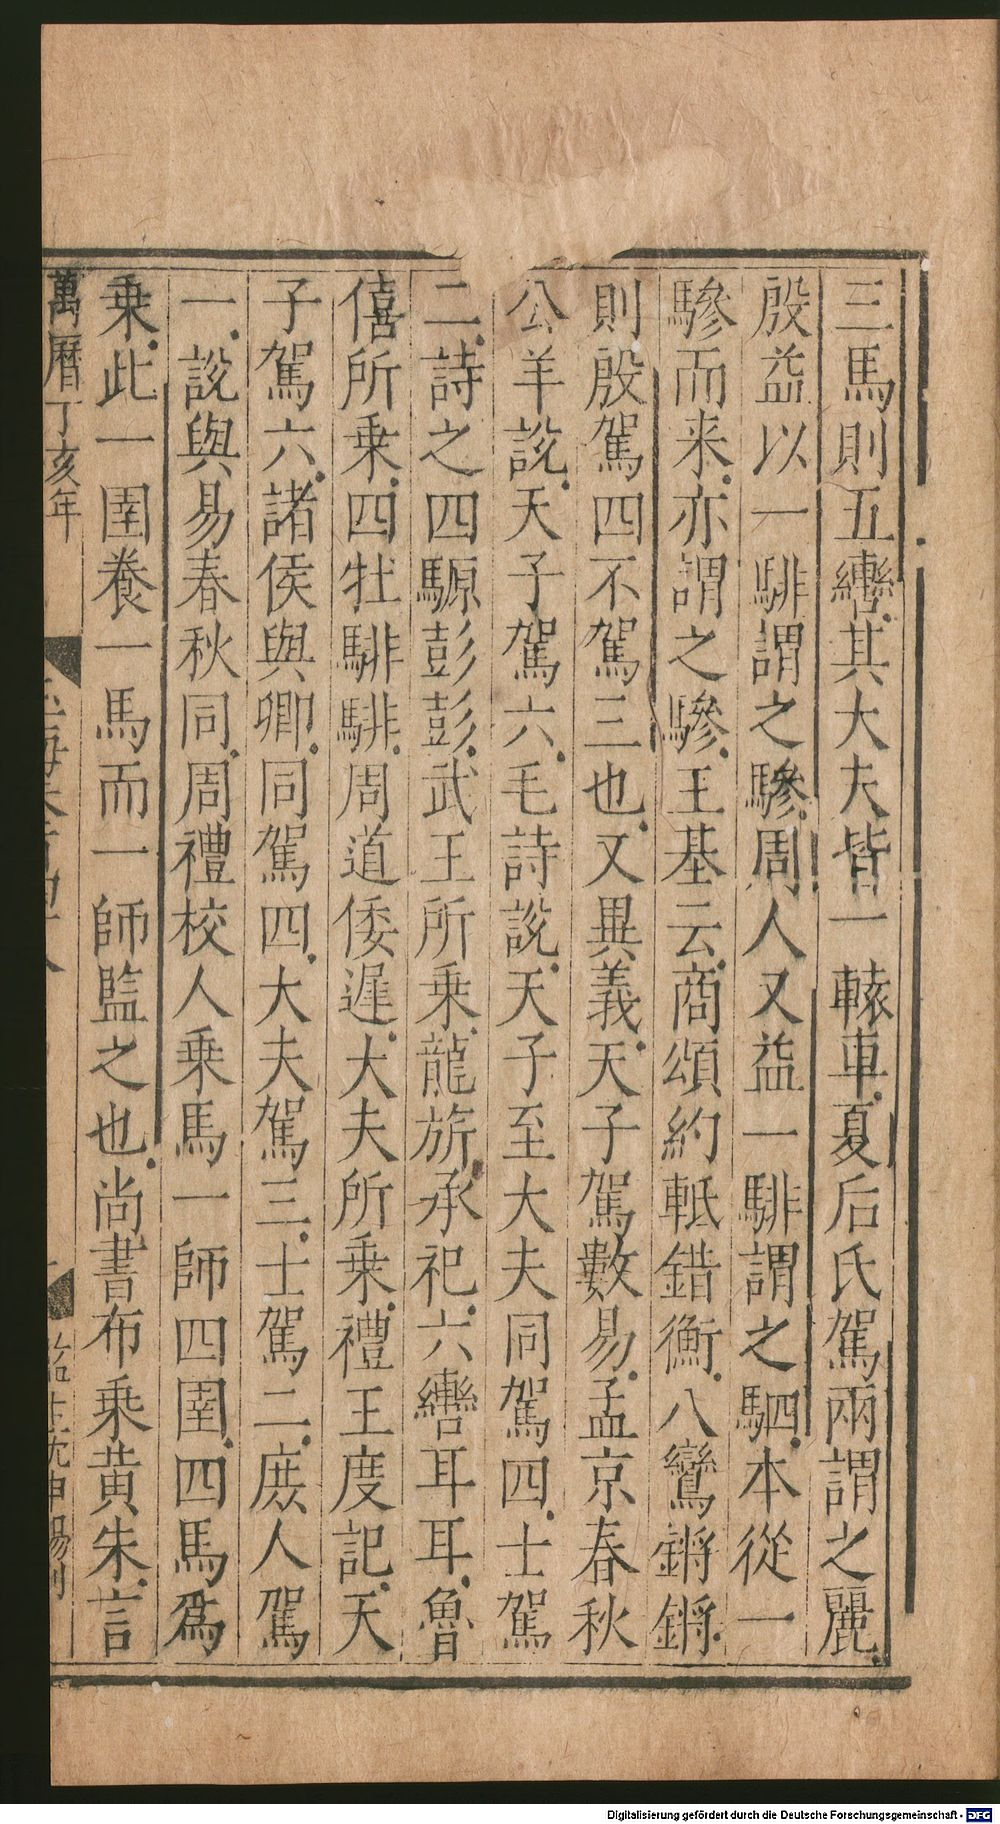 三馬則五轡其大夫皆一轅車夏后氏駕兩謂之麗
殷益以一騑謂之驂周人又益一騑謂之駟本從一
驂而来亦謂之驂王基云商頌約軧錯衡八鸞鏘鏘
則殷駕四不駕三也又異義天子駕數易孟京春秋
公羊說天子駕六毛詩說天子至大夫同駕四士駕
二詩之四騵彭彭武王所乗龍旂承祀六轡耳耳魯
僖所乗四牡騑騑周道倭遲大夫所乗禮王度記天
子駕六諸侯與卿同駕四大夫駕三士駕二庶人駕
一說與易春秋同周禮校人乗馬一師四圉四馬爲
乗此一圉養一馬而一師監之也尚書布乗黃朱言
萬曆丁亥年
Digitalisierung gefördert durch die Deutsche Forschungsgemeinschaft - DFG